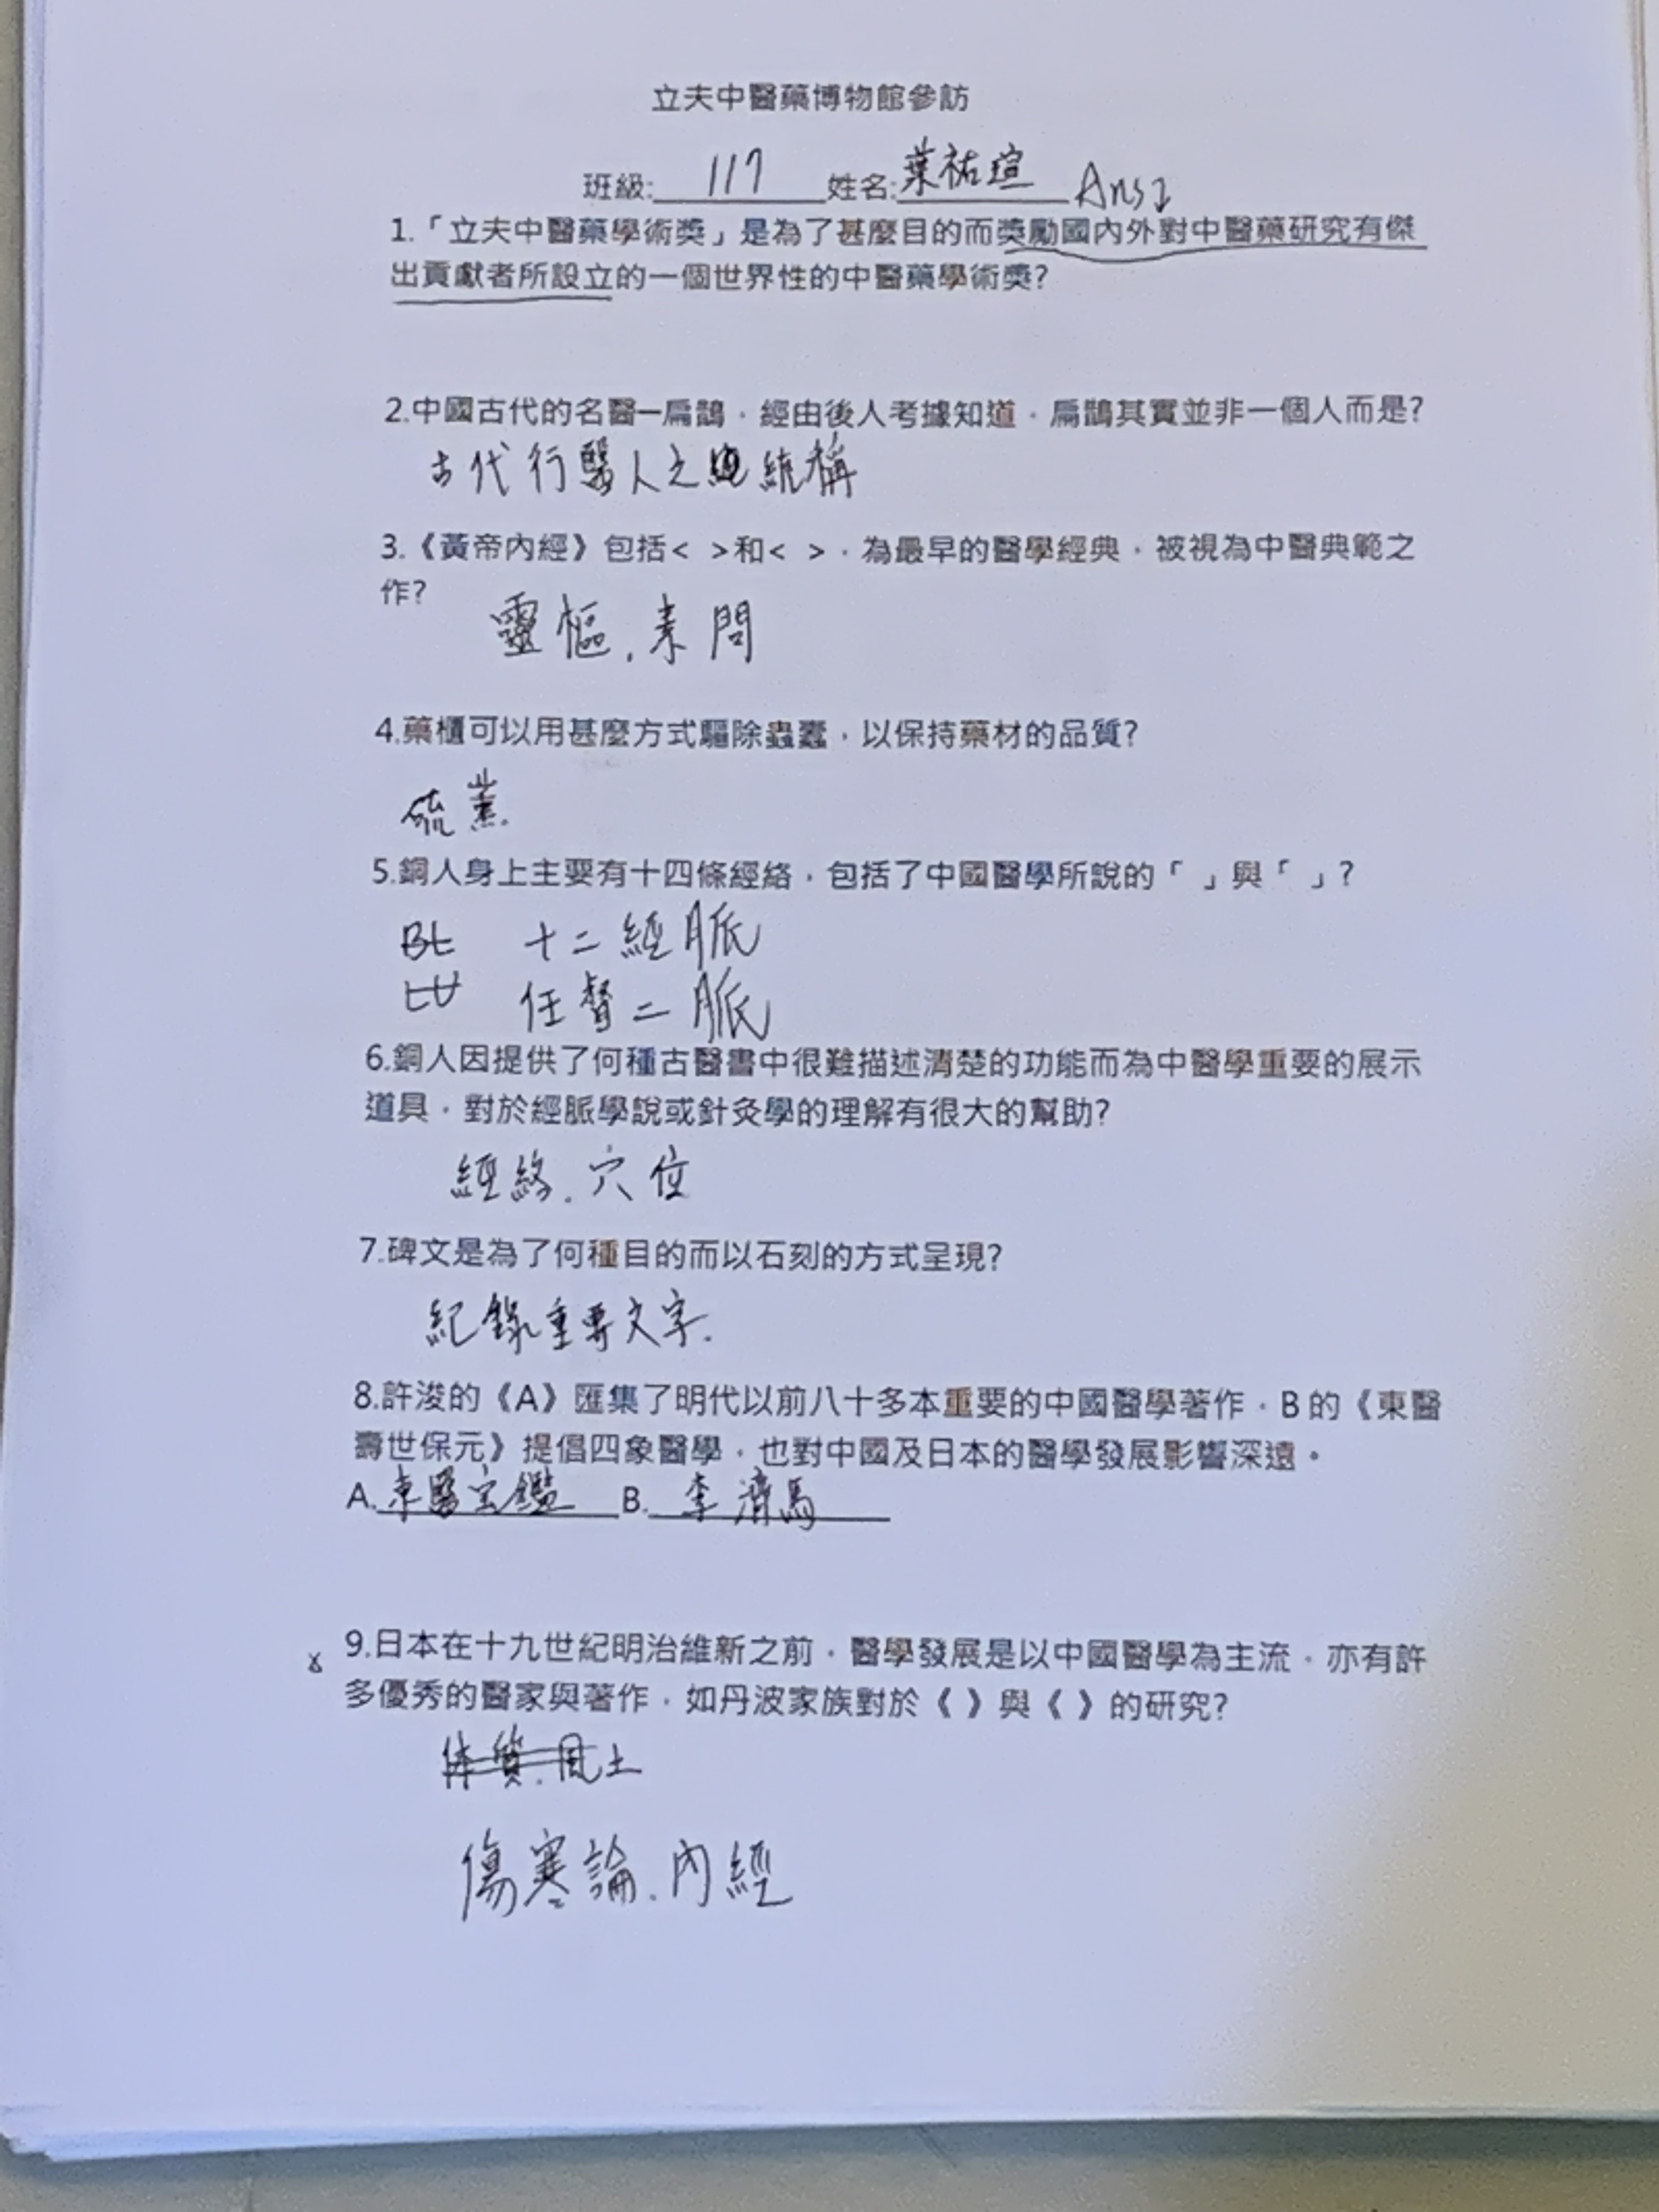 立夫中醫藥博物館參訪
班級: 117 姓名: 葉祐瑄 Ans 2
1.「立夫中醫藥學術獎」是為了甚麼目的而獎勵國內外對中醫藥研究有傑
出貢獻者所設立的一個世界性的中醫藥學術獎?
2.中國古代的名醫—扁鵲，經由後人考據知道，扁鵲其實並非一個人而是?
古代行醫人之統稱
3.《黃帝內經》包括< >和< >，為最早的醫學經典，被視為中醫典範之
作?
靈樞，素問
4.藥櫃可以用甚麼方式驅除蟲蠹，以保持藥材的品質?
硫黃.
5.銅人身上主要有十四條經絡，包括了中國醫學所說的「 」與「 」?
十二經脈
任督二脈
6.銅人因提供了何種古醫書中很難描述清楚的功能而為中醫學重要的展示
道具，對於經脈學說或針灸學的理解有很大的幫助?
經絡.穴位
7.碑文是為了何種目的而以石刻的方式呈現?
紀錄重要文字.
8.許浚的《A》匯集了明代以前八十多本重要的中國醫學著作，B 的《東醫
壽世保元》提倡四象醫學，也對中國及日本的醫學發展影響深遠。
A.東醫宝鑑 B.李濟馬
9.日本在十九世紀明治維新之前，醫學發展是以中國醫學為主流，亦有許
多優秀的醫家與著作，如丹波家族對於《 》與《 》的研究?
傷寒論.內經